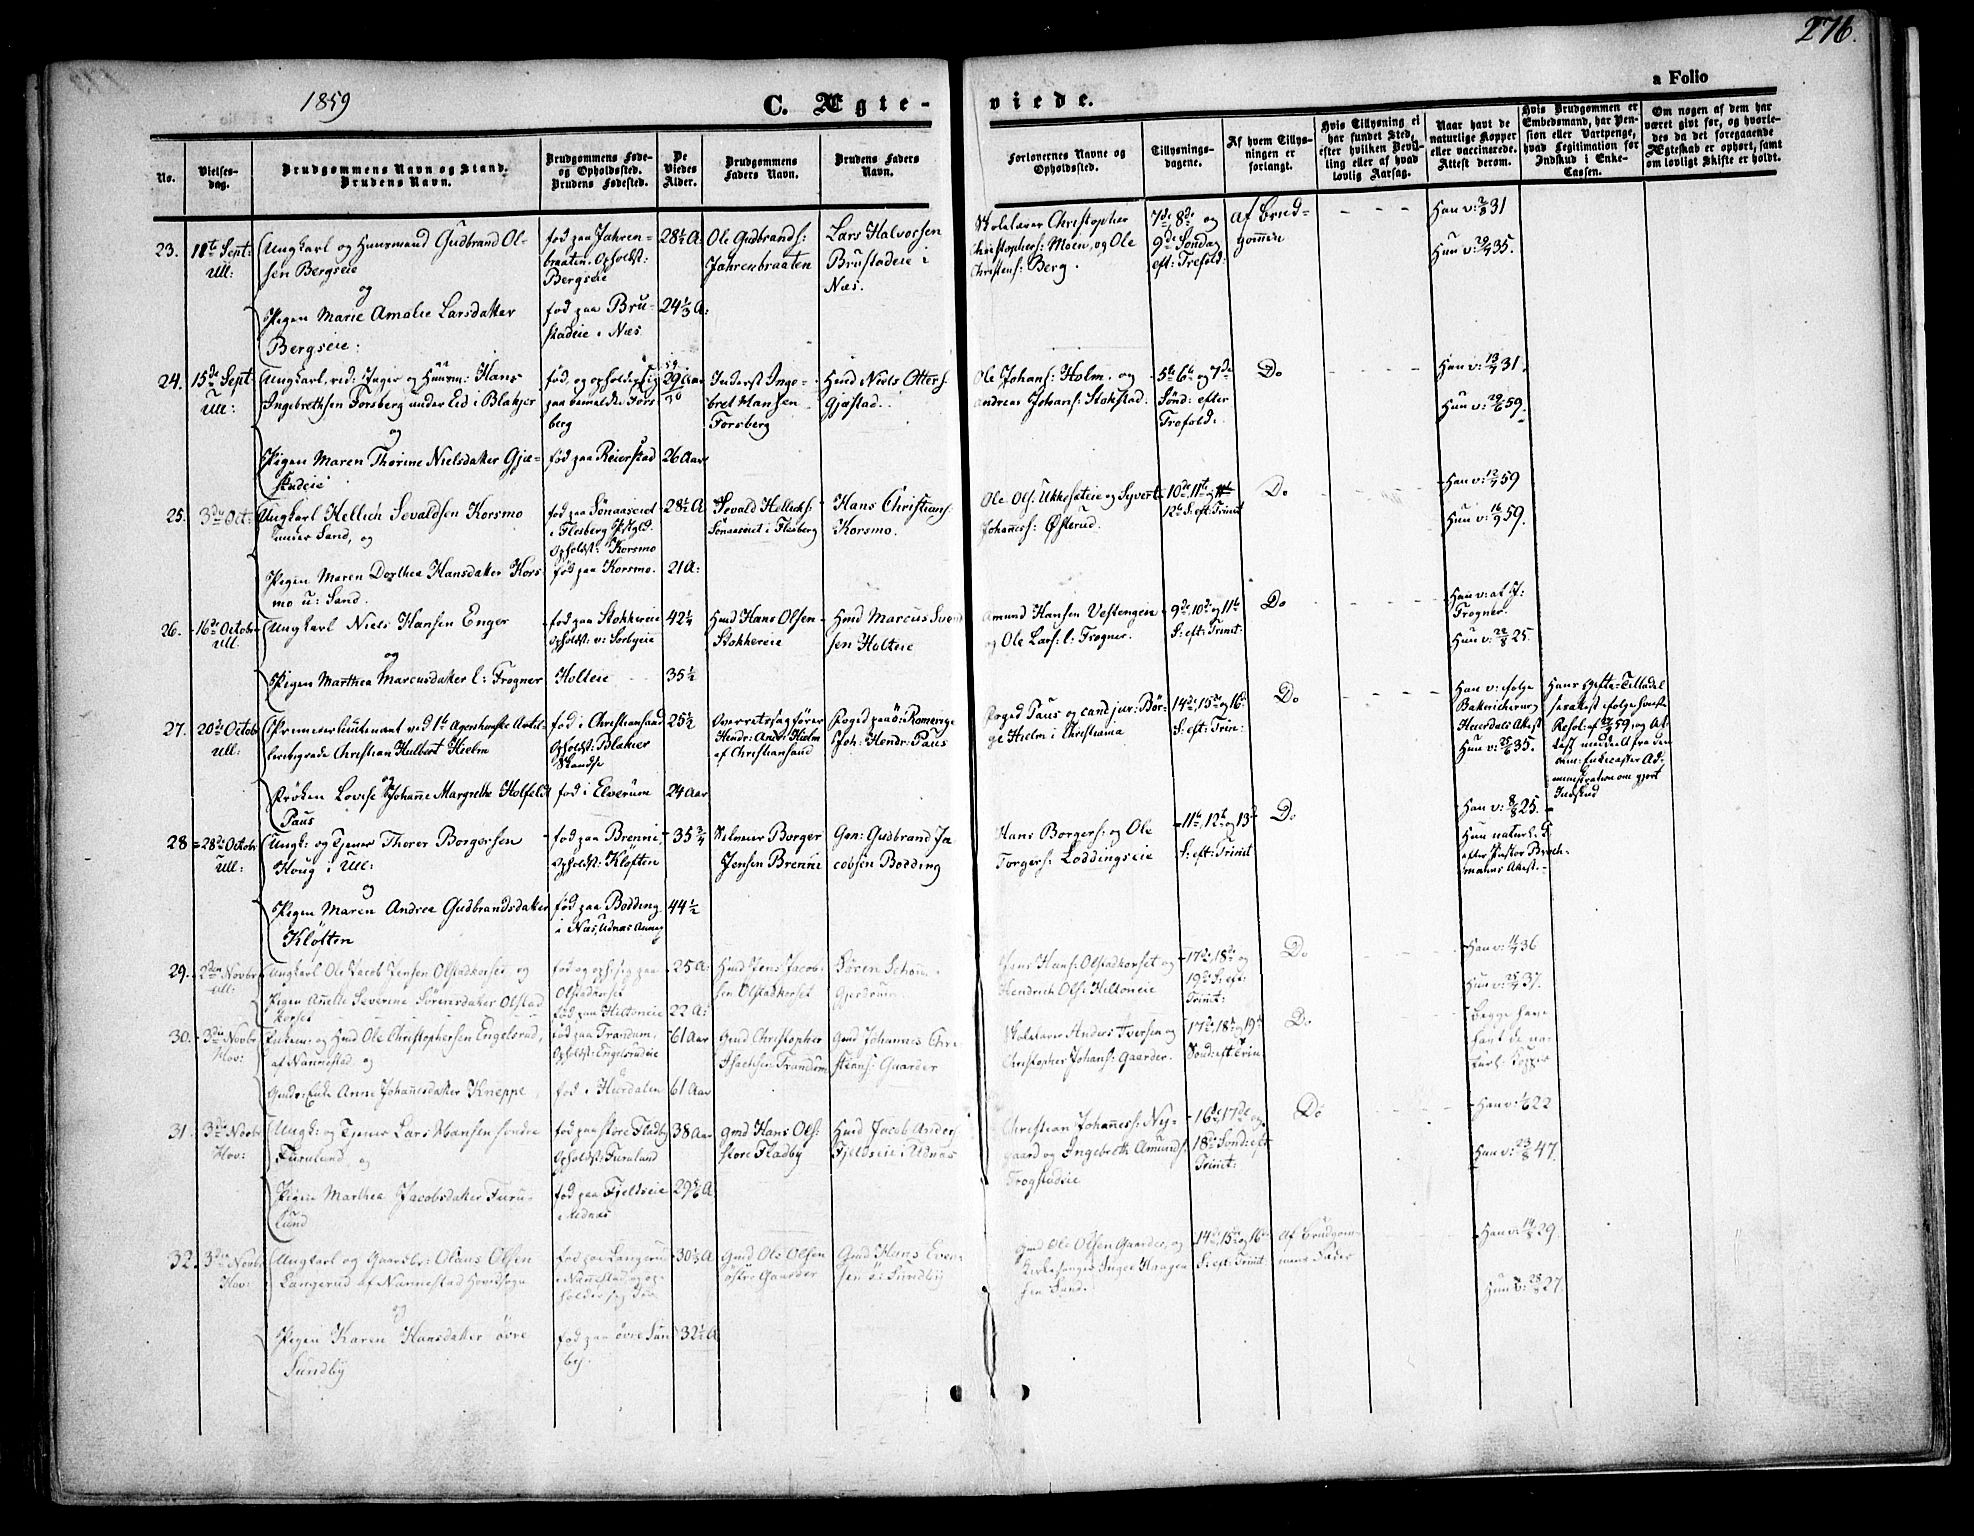 276.
a Folio
1859
C. Ægte-
viede.
No.
Vielses-
dag.
Brudgommens Navn og Stand.
Brudens Navn.
Brudgommens Føde-
og Opholdssted.
Brudens Fødested.
De
Viedes
Alder.
Brudgommens
Faders Navn.
Brudens Faders
Navn.
Forlovernes Navne og
Opholdssted.
Tillysnings-
dagene.
Af hvem Tillys-
ningen er
forlangt.
Hvis Tillysning ei
har fundet Sted,
efter hvilken Bevil-
ling eller af hvad
lovlig Aarsag.
Naar havt de
naturlige Kopper
eller vaccinerede.
Attest derom.
Hvis Brudgommen er
Embedsmand, har Pen-
sion eller Vartpenge,
hvad Legitimation for
Indskud i Enke-
Cassen.
Om nogen af dem har
været givt før, og hvorle-
des da det foregaaende
Ægteskab er ophørt, samt
om lovligt Skifte er holdt.
23.
11te Sept:
Ull:
Ungkarl og Huusmand Gudbrand Ol-
sen Bergseie
og
Pigen Marie Amalie Larsdatter
Bergseie:
fød paa Jahren-
braaten. Opholdst:
Bergseie
fød paa Bru-
stadeie i Næs
28½ A:
24⅓ A:
Ole Gudbrands:
Jahrenbraaten
Lars Halvorsen
Brustadeie i
Næs.
Skolelærer Christopher
Christophers: Moen, og Ole
Christens: Berg.
7de 8de og
9de Søndag
eft: Trefold:
af Brud-
gommen
Han v: 31
Hun v: 35.
24.
15de Sept:
Ull:
Ungkarl, Hans
Ingebrethsen Forsberg under Eid i Blakjer
og
Pigen Maren Thorine Nielsdatter Gjæ-
stadeie
fød, og opholder sig
paa bemeldte Fors
berg
fød paa Reierstad
29 Aar
26 Aar
Inderst Inge-
bret Hansen
Forsberg
Hmd Niels Otters:
Gjæstad.
Ole Johans: Holm og
Andreas Johans: Stokstad.
5te 6te og 7de
Sønd: efter
Trefold:
Do
Han v: 31.
Hun v: 59.
25.
3die Oct:
Ungkarl Hellich Sevaldsen Korsmo
under Sand, og
Pigen Maren Dorthea Hansdatter Kors-
mo u: Sand.
fød paa Sønaaseiet
i Flesberg Pstgld.
Opholdst: Korsmo
fød paa Korsmo.
28½ A
21 A:
Sevald Hellichs:
Sønaaseiet i Flesberg
Hans Christians:
Korsmo.
Ole Ols: Ukkestadeie og Syvert
Johannes: Østerud.
10de, 11te og
12te S: eft: Trinit
Do
Han v: 59
Hun v: 59.
26.
16de Octobr
Ull.
Ungkarl Niels Hansen Enger
og
Pigen Marthea Marcusdatter l: Frogner
fød paa Stokkereie
Opholdst: v: Sorlyeie
Holteie
42½
35½
Hmd Hans Olsen
Stokkereie
Hmd Marcus Svend
sen Holteie
Amund Hansen Vestengen
og Ole Lars: l: Frogner.
9de, 10de og 11te
S: eft: Trinit:
Do
Frogner.
Hun v: 25.
27.
20de Octobr
Ull:
Premierlieutenant ved 1te Agershusske Artil-
leribrigade Christian Hulbert Hielm
og
Frøken Lovise Johanne Margrethe Holfeldt
Paus
fød i Christianssand
Opholdst: Blakjer
Skandse
fød i Elverum
25½
24 Aar
Overretssagfører
Hendr: Andr: Hielm
af Christianssand
Foged paa Ø: Romerige
Joh: Hendr: Paus
Foged Paus og cand jur: Bör-
ge Hielm i Christiania
14de, 15de og 16de
S: eft: Trin:
Do
Han v: ifølge
Attest
Hun v: 35.
Hans Gifte-Tilladel
serattest ifølge
Resol: af 59, og At
test meddelt fra den
alm: Enkecasses Ad-
ministration om gjort
Indskud
28
28de Octobr
Ull:
Ungk: og Tjener Thorer Borgersen
Houg i Ull:
og
Pigen Maren Andrea Gudbrandsdatter
Kløften
fød paa Brenni,
Opholdst: Kløften
fød paa Bodding
i Næs, Udnæs Annex
35¾
44½
Selveier Borger
Jensen Brenni
Gmd: Gudbrand Ja-
cobsen Bodding
Hans Borgers: og Ole
Torgers: Loddingseie
11te, 12te og 13de
S: eft: Trinit
Do
Han v: 25.
Hun naturl: K:
efter Pastor Broch-
manns Attest.
29.
2den Novbr
Ull:
Ungkarl Ole Jacob Jensen Olstadkorset og
Pigen Anette Severine Sørensdatter Olstad
korset
fød og oph: sig paa
Olstadkorset
fød paa Hiltoneie
25 A:
22 A:
Hmd Jens Jacob-
sen Olstadkorset
Søren
Gjerdrum
Jens Hans: Olstadkorset og
Hendrich Ols: Hiltoneie
17de, 18de og
19de S: eft:
Trinit:
Do
Han v: 36
Hun v: 37.
30.
3die Novbr
Hov:
Enkem: og Hmd Ole Christophersen Engelsrud,
af Nannestad, og
Gmdr: Enke Anne Johannesdatter Kneppe
fød paa Trandum,
Opholdst: Engelsrudeie
fød i Hurdalen
61 Aar
61 Aar
Gmd Christopher
Isachsen Trandum
Gmd Johannes Chri-
stians: Gaarder
Skolelærer Anders Iversen og
Christopher Johans: Gaarder.
17de, 18de og 19de
Sønd: eft Trin:
Do
Begge have
havt de na-
turl: Kopper
31.
3die Novbr
Hov:
Ungk: og Tjener Lars Hansen søndre
Furulund, og
Pigen Marthea Jacobsdatter Furu-
lund
fød paa store Fladby
Opholdst: Furulund
fød paa Fjeldseie
i Udnæs
38 Aar
29⅚ A
Gmd Hans Ols:
store Fladby
Hmd Jacob Anders:
Fjeldseie i Udnæs
Christian Johannes: Ny-
gaard og Ingebreth Amunds:
Trogstadeie
16de 17de og
18de Sønd: eft
Trinit:
Do
Han v: 22
Hun v: 47.
32.
3die Novbr
Hov:
Ungkarl og Gaardbr: Olaus Olsen
Langerud af Nannestad Hovedsogn
og
Pigen Karen Hansdatter øvre
Sundby
fød paa Langerud
i Nannestad og op-
holder sig der
fød paa øvre Sun
by.
30½ A
32½ A
Gmd Ole Olsen
østre Gaarder
Gmd Hans Even-
sen ø: Sundby
Gmd Ole Olsen Gaarder, og
Kirkesanger Inger Haagen-
sen Sand.
14de, 15de og 16de
S: eft: Trinit
Af Brudgom-
mens Fader
Han v: 29
Hun v: 27.